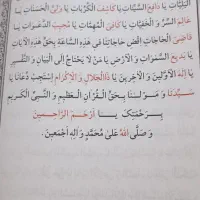 الْبَلِيَّاتِ يَا دَافِعَ السَّيِّئَاتِ يَا كَاشِفَ الْكُرُبَاتِ يَا وَلِيَّ الْحَسَنَاتِ يَا
عَالِمَ السِّرِّ وَ الْخَفِيَّاتِ يَا كَافِيَ الْمُهِمَّاتِ يَا مُجِيبَ الدَّعَوَاتِ يَا
قَاضِيَ الْحَاجَاتِ اقْضِ حَاجَاتِنَا فِي هٰذِهِ السَّاعَةِ بِحَقِّ هٰذِهِ الْآيَاتِ
يَا بَدِيعَ السَّمٰوَاتِ وَ الْأَرْضِ يَا مَنْ لَا يَحْتَاجُ إِلَى الْبَيَانِ وَ التَّفْسِيرِ
يَا إِلٰهَ الْأَوَّلِينَ وَ الْآخِرِينَ يَا ذَاالْجَلَالِ وَ الْإِكْرَامِ اسْتَجِبْ دُعَائَنَا يَا
سَيِّدَنَا وَ مَوْلَانَا بِحَقِّ الْقُرْآنِ الْعَظِيمِ وَ النَّبِيِّ الْكَرِيمِ
بِرَحْمَتِكَ يَا أَرْحَمَ الرَّاحِمِينَ
وَ صَلَّى اللهُ عَلَى مُحَمَّدٍ وَ آلِهِ أَجْمَعِينَ.